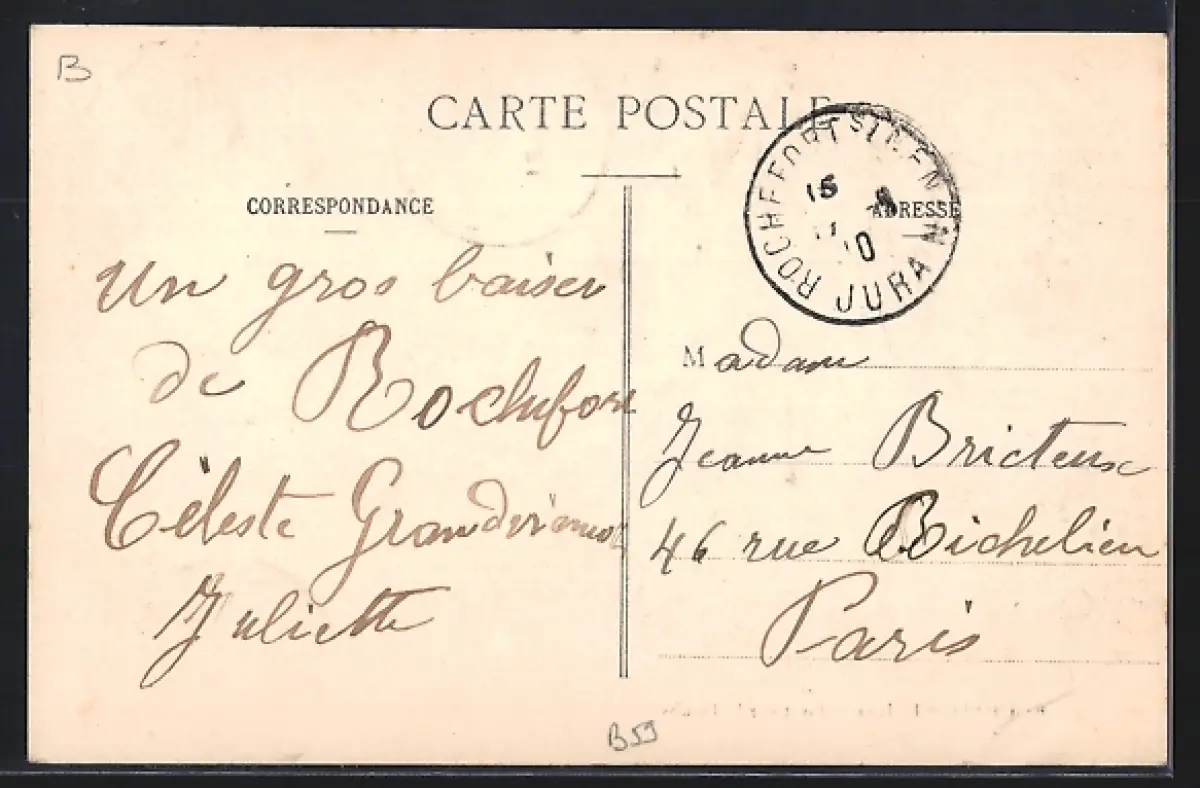 B
CARTE POSTALE
CORRESPONDANCE
ADRESSE
ROCHEFORT S/NENON
15
10
JURA
Un gros baiser
de Rochefort
Céleste
Juliette
Madame
Jeanne Bricteux
46 rue Richelieu
Paris
B59